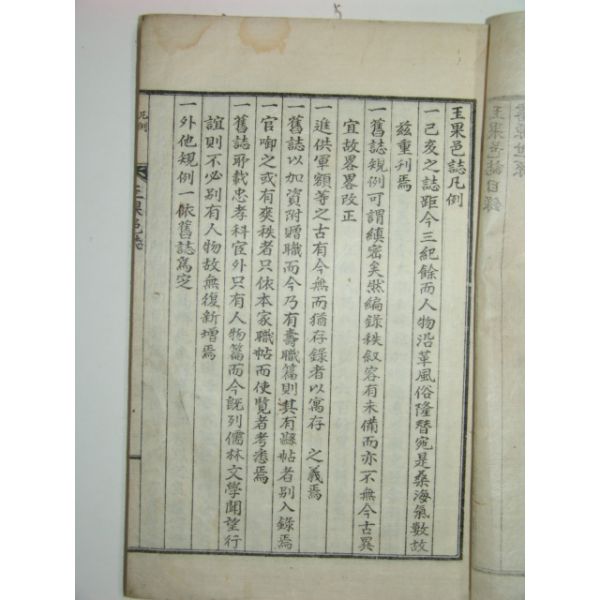 玉果邑誌凡例
一己亥之誌距今三紀餘而人物沿革風俗隆替宛是桑海氣數故
玆重刊焉
一舊誌規例可謂縝密矣然編錄秩叙容有未備而亦不無今古異
宜故畧畧改正
一進供軍額等之古有今無而猶存錄者以寓存 之義焉
一舊誌以加資附贈職而今乃有壽職篇則其有謄帖者別入錄焉
一官啣之或有爽秩者只依本家職帖而使覽者考悉焉
一舊誌所載忠孝科宦外只有人物篇而今旣列儒林文學聞望行
誼則不必別有人物故無復新增焉
一外他規例一依舊誌寫定
凡例
玉果邑誌
玉果邑誌目錄
5